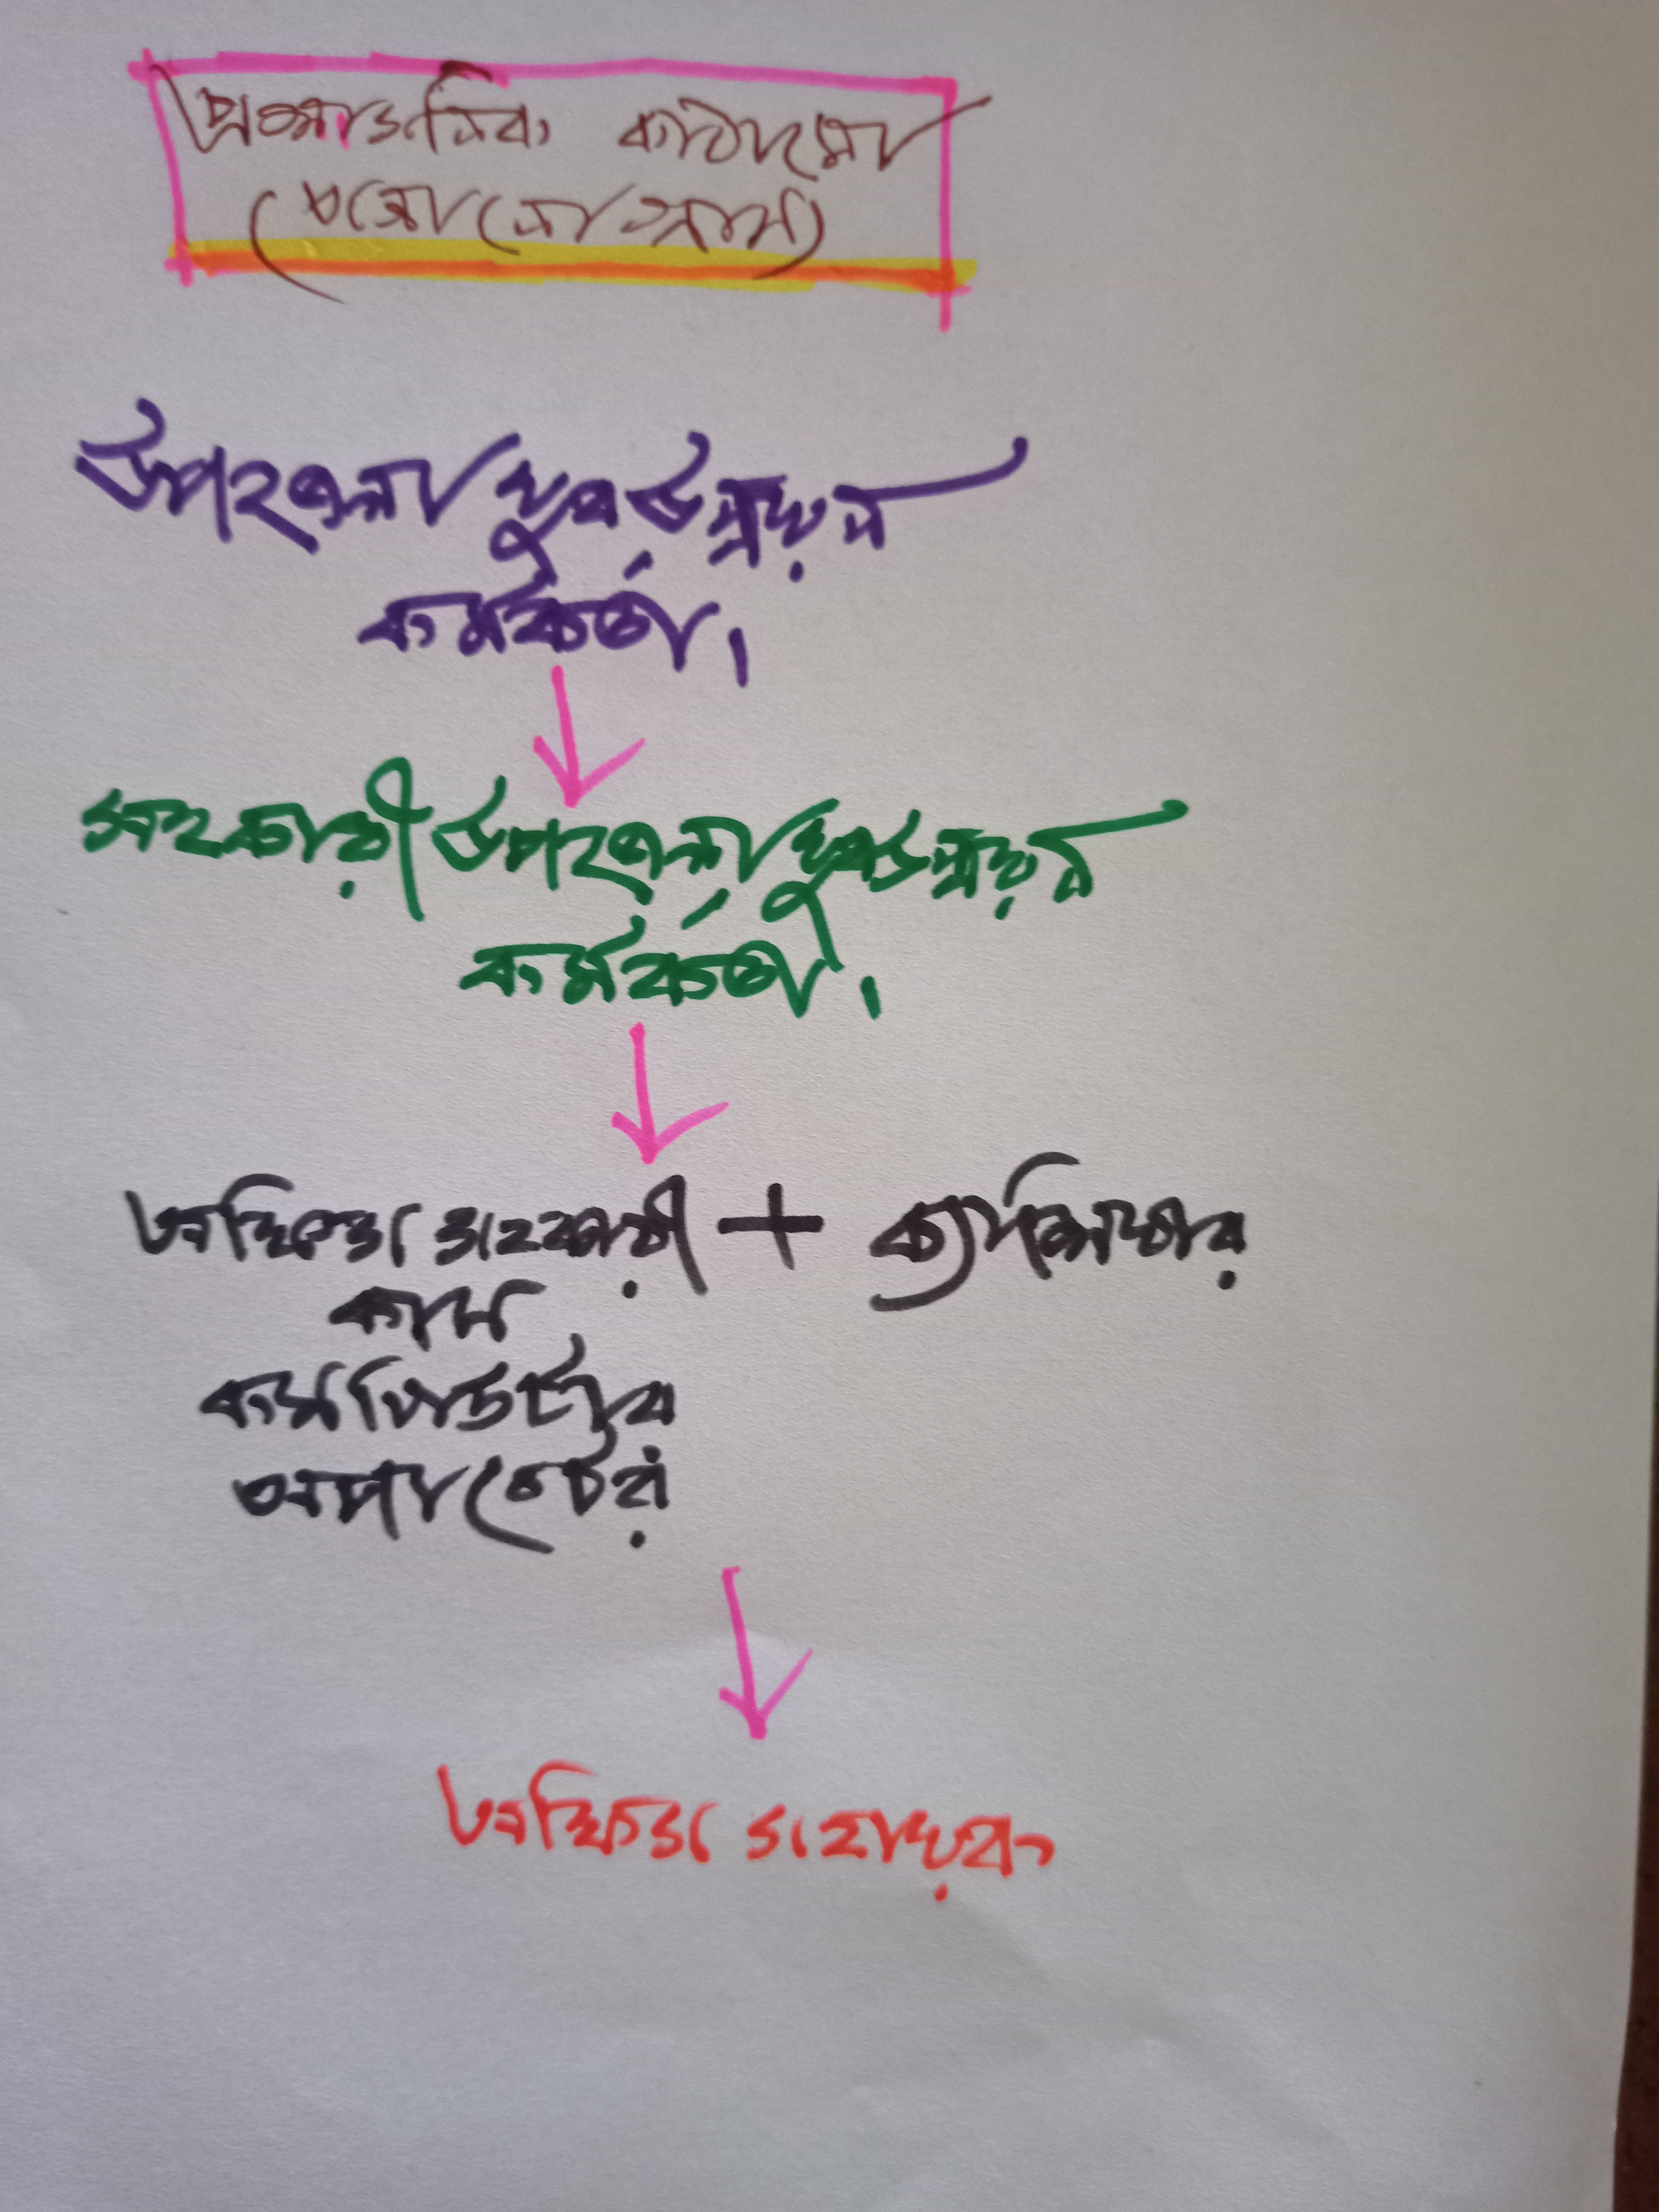 প্রশাসনিক কাঠামো
উপজেলা যুব উন্নয়ন
কর্মকর্তা।
সহকারী উপজেলা যুব উন্নয়ন
কর্মকর্তা।
অফিস সহকারী + ক্যাশিয়ার
কাম
কম্পিউটার
অপারেটর
অফিস সহায়ক